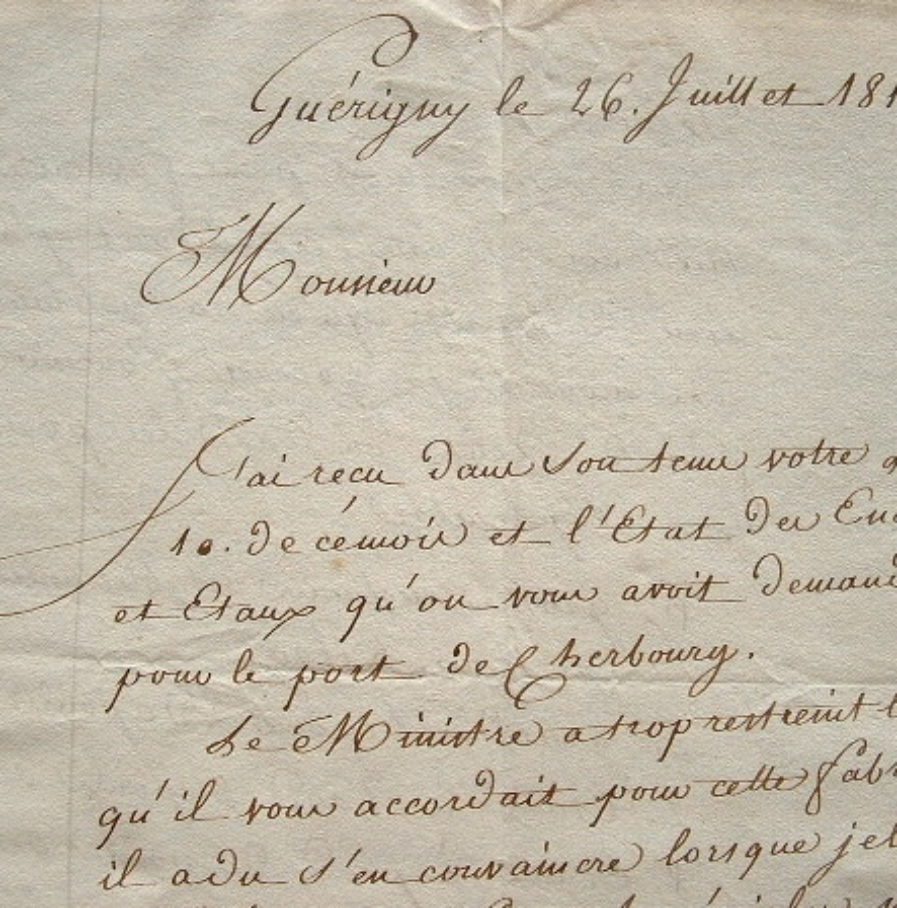 Guérigny le 26. Juillet 181
Monsieur
J'ai recu dans son tems votre
10. de cémois et l'Etat des Enc
et Etaux qu'on vous avoit demand
pour le port de Cherbourg.
Le Ministre a trop restreint l
qu'il vous accordait pour cette fabr
il a du s'en convaincre lorsque jel